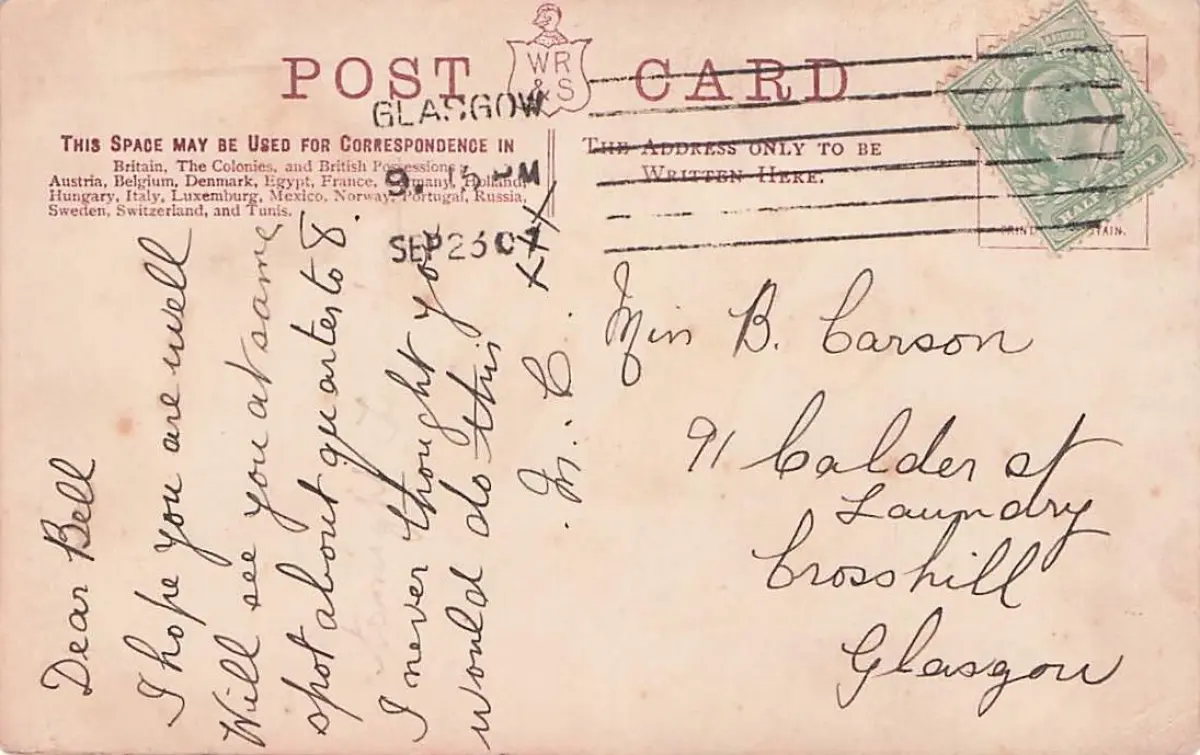 POST CARD
WR
& S
GLASGOW
9. 15 PM
SEP 23 07
THIS SPACE MAY BE USED FOR CORRESPONDENCE IN
Britain, The Colonies, and British Possessions,
Austria, Belgium, Denmark, Egypt, France, Germany, Holland,
Hungary, Italy, Luxemburg, Mexico, Norway, Portugal, Russia,
Sweden, Switzerland, and Tunis.
THE ADDRESS ONLY TO BE
WRITTEN HERE.
HALF PENNY
Dear Bell
I hope you are well
Will see you at same
spot about quarter to 8.
I never thought you
would do this
. M. C. xxx
Miss B. Carson
91 Calder st
Laundry
Crosshill
Glasgow